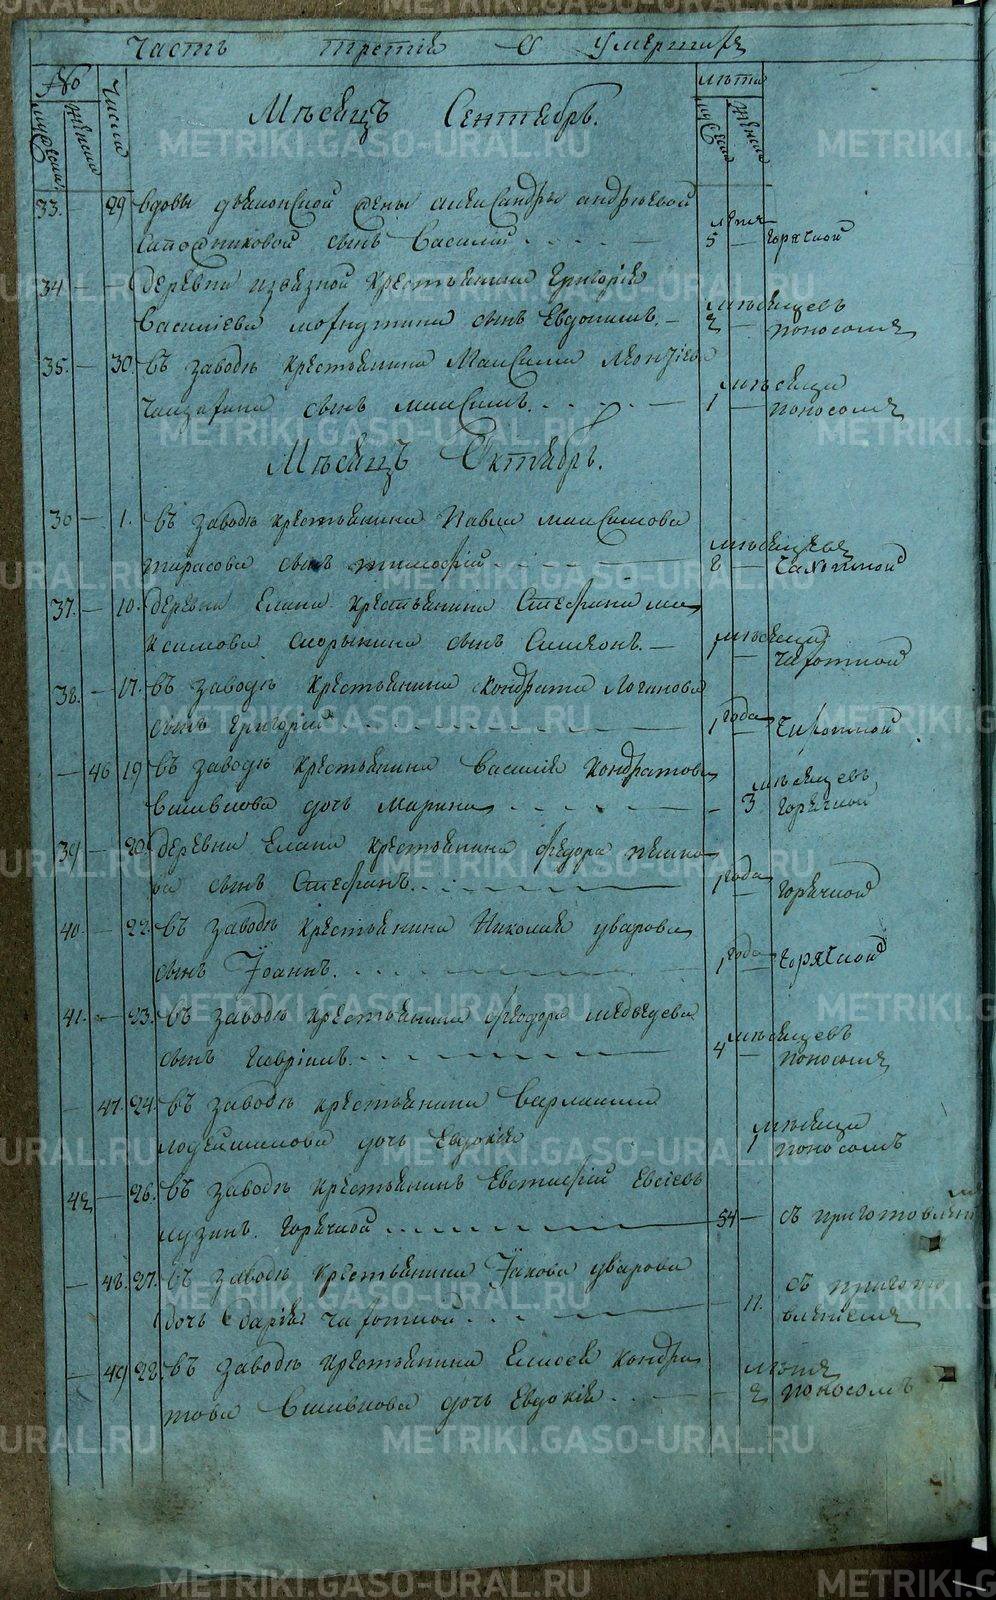 Часть третія О умершихъ
No
мужеска
женска
Числа
Мѣсяцъ Сентябрь.
лѣта
мужеска
женска
33. 29 вдовы дьяконской жены александры андрѣевой
сапожниковой сынъ Василій
лѣтъ
5 горячкой
34. деревни крестьянина Григорія
Василіева сынъ Евдокимъ.
мѣсяцевъ
2 поносомъ
35. 30. въ заводѣ крестьянина Максима Леонтіева
сынъ максимъ.
мѣсяца
1 поносомъ
Мѣсяцъ Октябрь.
36 1. въ заводѣ крестьянина Павла максимова
тарасова сынъ тимофей
мѣсяцевъ
8 чахоткой
37. 10. деревни Елани крестьянина Стефана ма
ксимова скорынина сынъ Симеонъ.
мѣсяца
1 чахоткой
38. 17. въ заводѣ крестьянина кондрата логинова
сынъ григорій
1 года чахоткой
46 19 въ заводѣ крестьянина Василія кондратова
Вшивкова дочь марина
мѣсяцевъ
3 горячкой
39 20. деревни Елани крестьянина федора
ва сынъ Стефанъ.
1 года горячкой
40. 22. въ заводѣ крестьянина Николая уварова
сынъ Іоаннъ.
1 года горячкой
41. 23. въ заводѣ крестьянина феодора медведева
сынъ Гавріилъ.
мѣсяцевъ
4 поносомъ
47. 24. въ заводѣ крестьянина Варлаама
дочь Евдокія
мѣсяца
1 поносомъ
42 26. въ заводѣ крестьянинъ Евстафій Евсіевъ
лузинъ. горячкой
54 съ приготовлені
емъ
48. 27. въ заводѣ крестьянина Іакова уварова
дочь дарія чахоткой
11. съ пригото
вленіемъ
49 28. въ заводѣ крестьянина Елисея кондра
това Вшивкова дочь Евдокія
лѣтъ
2 поносомъ
METRIKI.GASO-URAL.RU